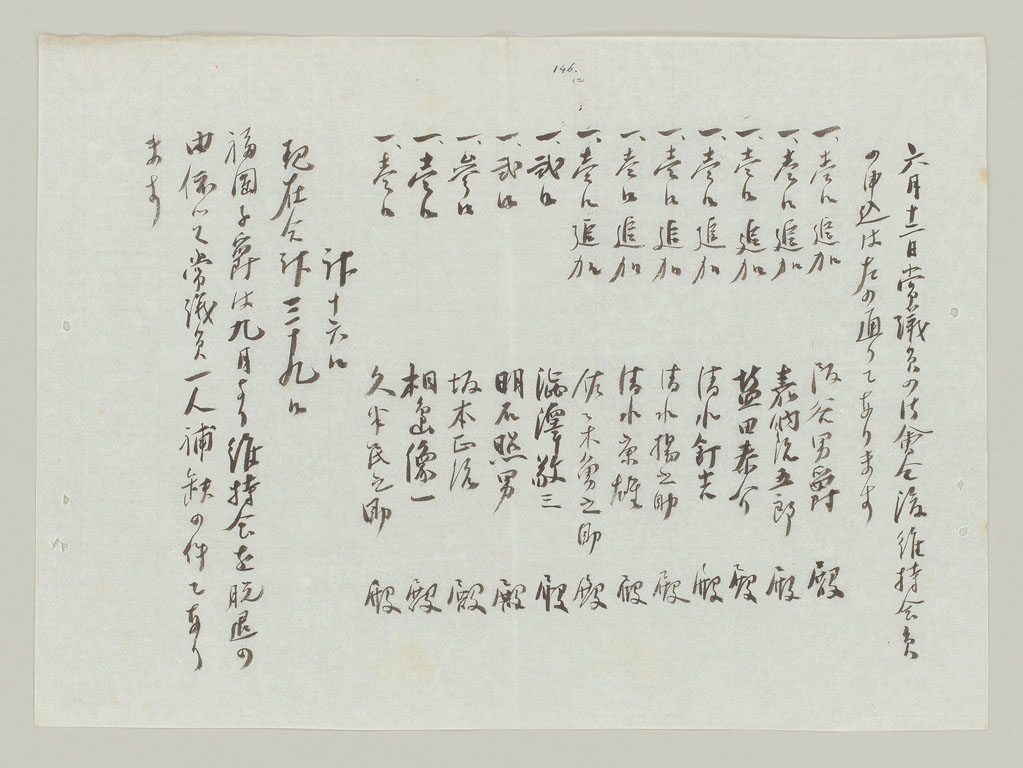 146.
六月十二日常議員の御会合後維持会員
の申込は左の通りであります
一、壱口追加 阪谷男爵 殿
一、壱口追加 嘉納治五郎 殿
一、壱口追加 益田泰介 殿
一、壱口追加 清水釘吉 殿
一、壱口追加 清水揚之助 殿
一、壱口追加 清水康雄 殿
一、壱口追加 佐々木勇之助 殿
一、弐口 渋澤敬三 殿
一、弐口 明石照男 殿
一、参口 坂本正治 殿
一、壱口 相島像一 殿
一、壱口 久米民之助 殿
計十六口
現在合計三十九口
福岡子爵は九月より維持会を脱退の
由依て常議員一人補欠の件であり
ます